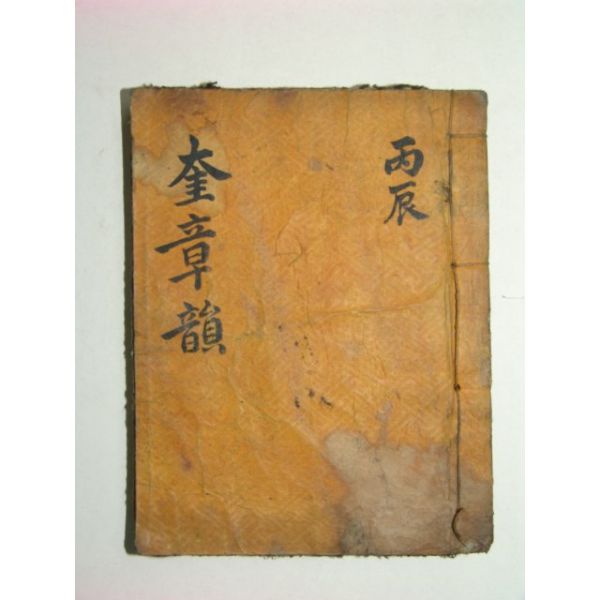 丙辰
奎章韻